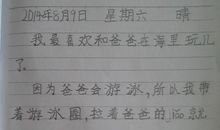 2014年8月9日 星期六 晴
我最喜欢和爸爸在海里玩儿
了。
因为爸爸会游泳,所以我带
着游泳圈,拉着爸爸的 就